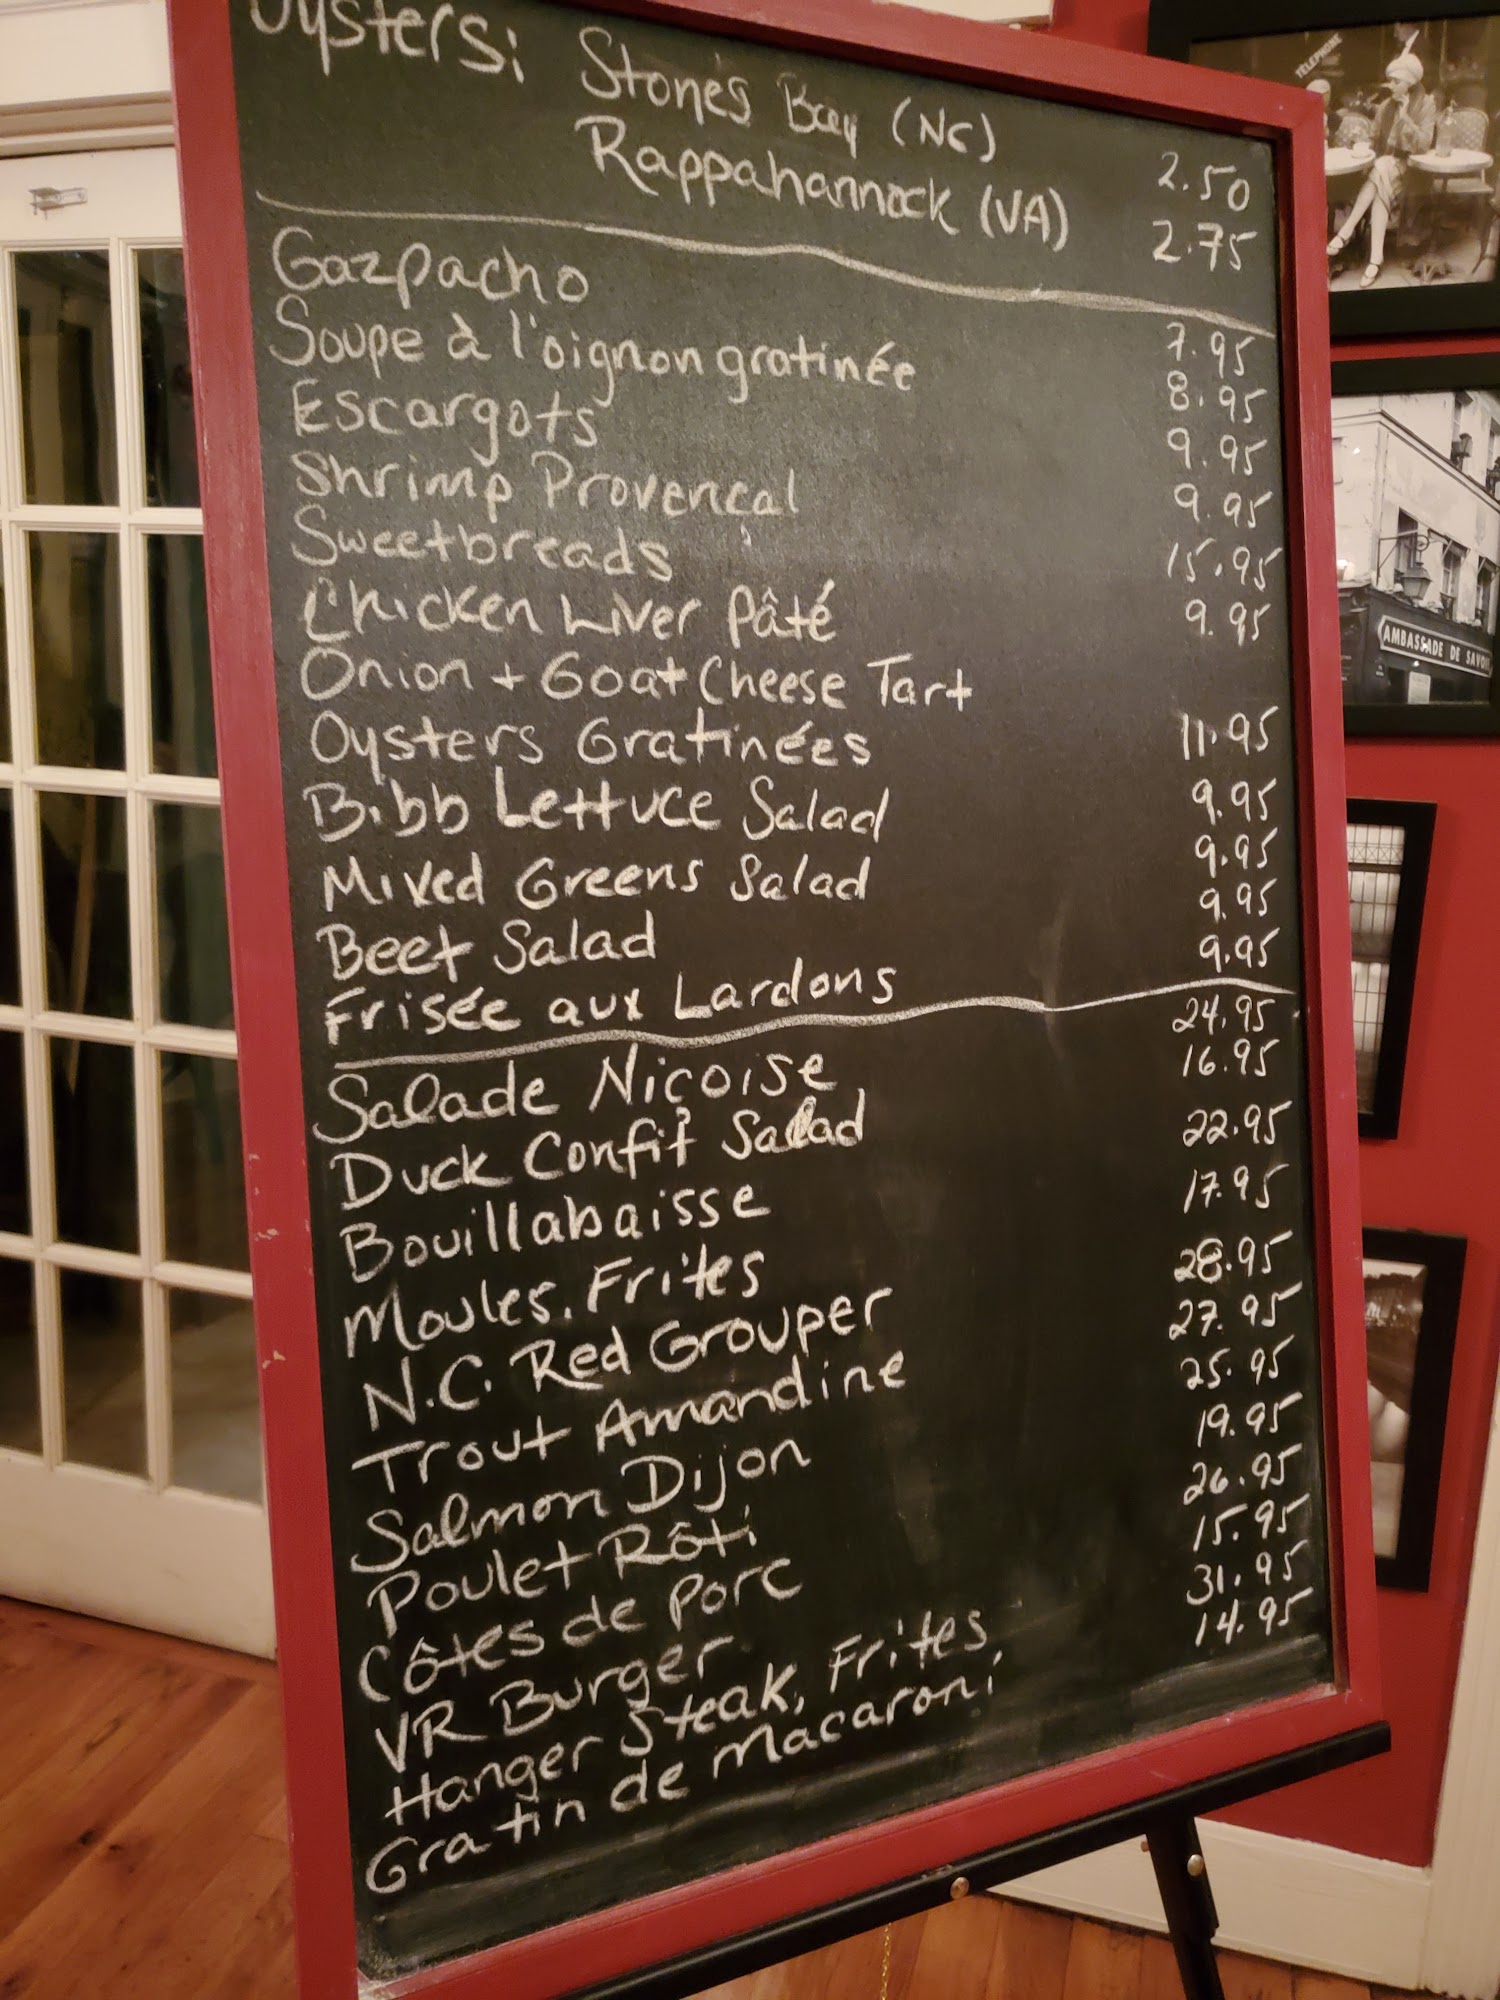 Oysters: Stones Bay (NC) 2.50
Rappahannock (VA) 2.75
Gazpacho 7.95
Soupe à l'oignon gratinée 8.95
Escargots 9.95
Shrimp Provençal 9.95
Sweetbreads 15.95
Chicken Liver Pâté 9.95
Onion + Goat Cheese Tart
Oysters Gratinées 11.95
Bibb Lettuce Salad 9.95
Mixed Greens Salad 9.95
Beet Salad 9.95
Frisée aux Lardons 9.95
Salade Niçoise 24.95
Duck Confit Salad 16.95
Bouillabaisse 22.95
Moules, Frites 17.95
N.C. Red Grouper 28.95
Trout Amandine 27.95
Salmon Dijon 25.95
Poulet Rôti 19.95
Côtes de Porc 26.95
VR Burger 15.95
Hanger Steak, Frites 31.95
Gratin de Macaroni 14.95
TELEPHONE
AMBASSADE DE SAVOIE